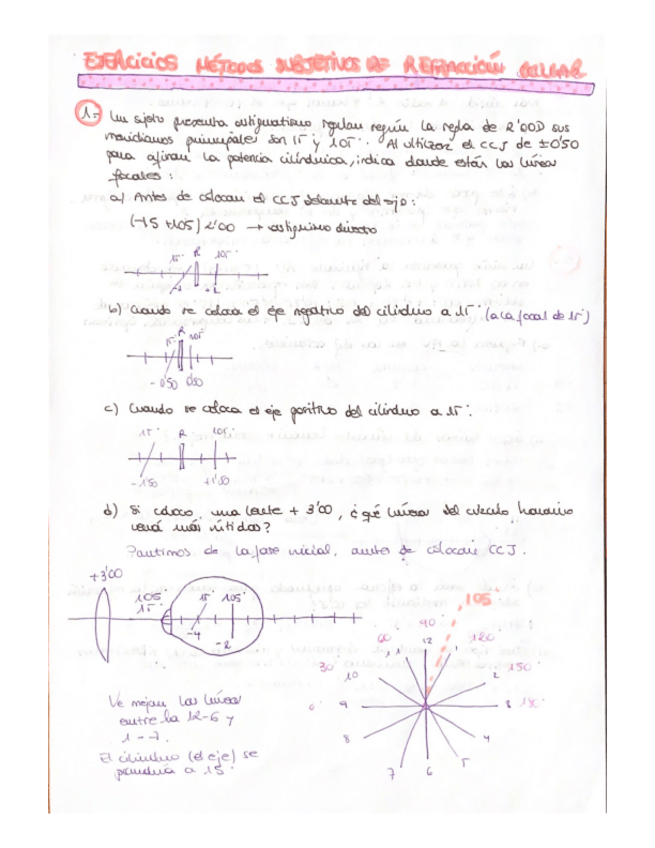 EJERCICIOS MÉTODOS SUBJETIVOS DE REFRACCIÓN OCULAR
1.- Un sujeto presenta astigmatismo regular según la regla de 2'00D sus
meridianos principales son 15 y 105°. Al utilizar el CCJ de ±0'50
para afinar la potencia cilíndrica, indica donde están las líneas
focales:
a) Antes de colocar el CCJ delante del ojo:
(-15 +105) 2'00 → astigmino directo
15° R 105°
-1 +1
b) Cuando se coloca el eje negativo del cilindro a 15°. (a la focal de 15°)
15° R 105
-0'50 0'50
c) Cuando se coloca el eje positivo del cilindro a 15°.
15° R 105°
-1'50 +1'50
d) Si coloco una lente +3'00, ¿qué líneas del círculo horario
verá más nítidas?
Partimos de la fase inicial, antes de colocar CCJ.
+3'00
105° 15 105°
15°
-4 -2
105
90
60 12 120
1
30 150°
10 2
0° 9 3 180°
8 4
7 6 5
Ve mejor las líneas
entre la 12-6 y
1-7.
El cilindro (el eje) se
pondría a 15°